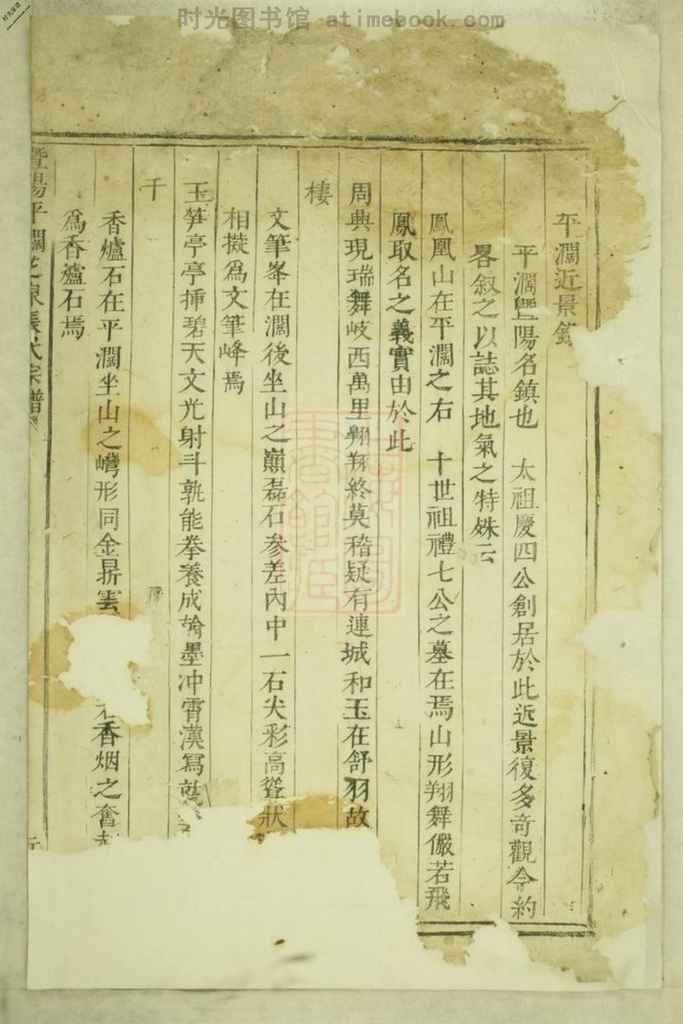 时光图书馆 atimebook.com
平瀾近景
平瀾暨陽名鎮也 太祖慶四公創居於此近景復多奇觀今約
畧叙之以誌其地氣之特殊云
鳳凰山在平瀾之右 十世祖禮七公之墓在焉山形翔舞儼若飛
鳳取名之義實由於此
周興現瑞舞岐西萬里翱翔終莫稽疑有連城和玉在舒羽故
棲
文筆峯在瀾後坐山之巔磊石參差內中一石尖彩高聳狀
相擬爲文筆峰焉
玉笋亭亭揷碧天文光射斗孰能拳養成翰墨冲霄漢寫就
千
香爐石在平瀾坐山之灣形同金鼎雲 香烟之奮
爲香爐石焉
暨陽平瀾 張氏宗譜